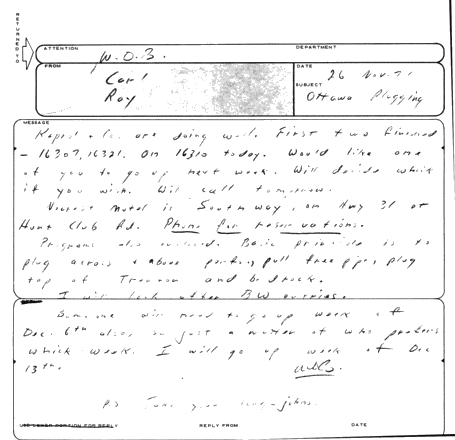 RETURNED TO
ATTENTION DEPARTMENT
W.O.B.
FROM DATE
Carl 26 Nov. 71
SUBJECT
Roy Ottawa Plugging
MESSAGE
& Co. are doing well. First two finished
- 16307, 16321. On 16310 today. Would like one
of you to go up next week. Will decide which
if you wish. Will call tomorrow.
Nearest Motel is Southway, on Hwy 31 at
Hunt Club Rd. Phone for reservations.
Programs also enclosed. Basic principle is to
plug across & above pull free pipe, plug
top of Trenton and bedrock.
I will look after BW queries.
Someone will need to go up week of
Dec. 6th also, so just a matter of who prefers
which week. I will go up week of Dec
13th.
P.S. your
USE LOWER PORTION FOR REPLY REPLY FROM DATE